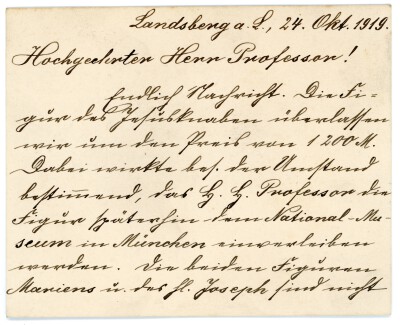 Landsberg a. L., 24. Okt. 1919.
Hochgeehrter Herr Professor!
Endlich Nachricht. Die Fi-
gur des Jesusknaben überlassen
wir um den Preis von 1200 M.
Dabei wirkte bes. der Umstand
bestimmend, das H. H. Professor die
Figur späterhin dem National-Mu-
seum in München einverleiben
werden. Die beiden Figuren
Mariens u. des hl. Joseph sind nicht